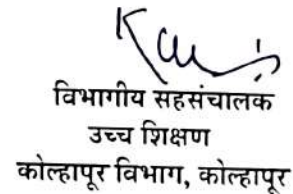 विभागीय सहसंचालक
उच्च शिक्षण
कोल्हापूर विभाग, कोल्हापूर